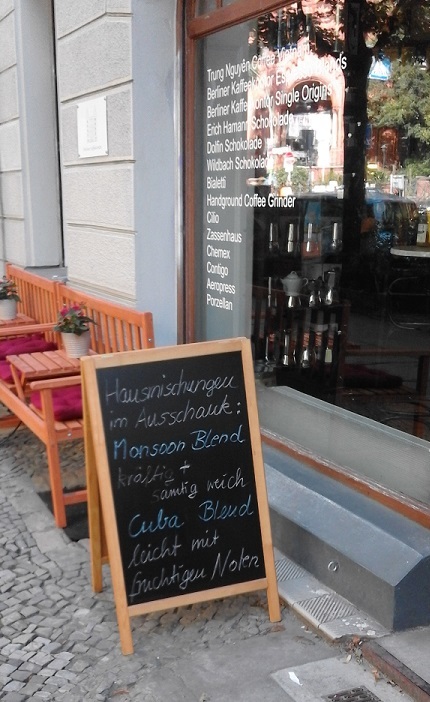 Trung Nguyên Coffee Vietnam
Berliner Kaffeekontor
Berliner Kaffeekontor Single Origins
Erich Hamann Schokolade
Dolfin Schokolade
Wildbach Schokolade
Bialetti
Handground Coffee Grinder
Cilio
Zassenhaus
Chemex
Contigo
Aeropress
Porzellan
Hausmischungen
im Ausschank:
Monsoon Blend
kräftig +
samtig weich
Cuba Blend
leicht mit
fruchtigen Noten